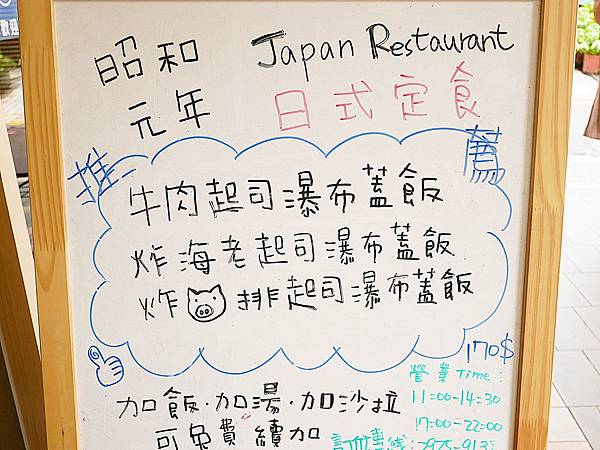 昭和 Japan Restaurant
元年 日式定食
推 薦
牛肉起司瀑布蓋飯
炸海老起司瀑布蓋飯
炸排起司瀑布蓋飯
170$
加飯·加湯·加沙拉
可免費續加
營業Time:
11:00-14:30
17:00-22:00